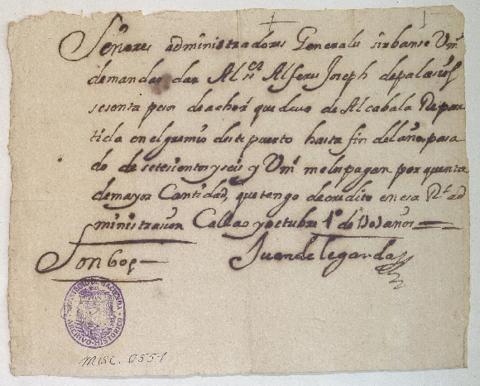 Señores administradores Generales sirbanse Vm
demandar dar Al Alferes Joseph de palacios
sesenta pesos de a ocho que deve de Alcabala Repar
tida en el gremio deste puerto hasta fin del año pasa
do de setecientos y seis y Vm me los pagan por quenta
de mayor Cantidad, que tengo de credito en esa Rl ad
ministracion Callao y octubre 1º de 1707 años
Son 60 ps
Juan de Legarda
MINISTERIO DE HACIENDA
ARCHIVO HISTORICO
MISC. 0551